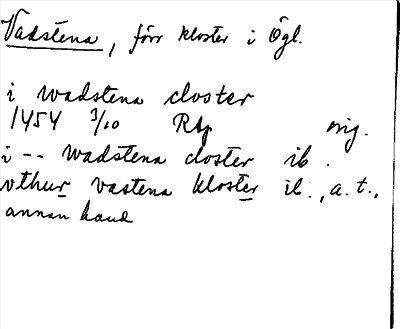 Vadstena, förr kloster i Ögl.
i wadstena closter
1454 3/10 Rap orig.
i -- wadstena closter ib.
vthur vastena kloster ib., a.t.,
annan hand